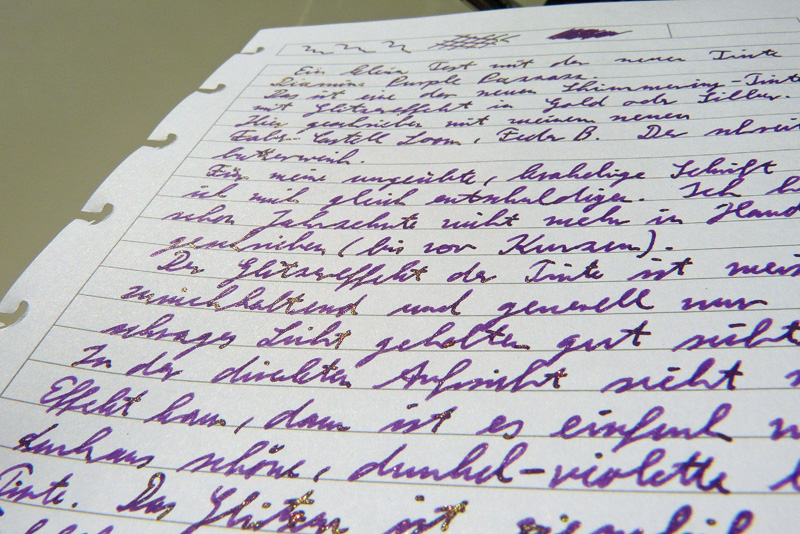 Ein klein Test mit der neuen Tinte
Diamine Purple Pazzazz.
Das ist eine der neuen Shimmering-Tinte
mit Glitzereffekt in Gold oder Silber.
Hier geschrieben mit meinem neuen
Faber Castell Loom, Feder B. Der schreibt
butterweich.
Für meine ungeübte, krakelige Schrift
ich mich gleich entschuldigen. Ich
schon Jahrzehnte nicht mehr in Hand
geschrieben (bis vor Kurzem).
Der Glitzereffekt der Tinte ist
zurückhaltend und generell nur
schräges Licht gehalten gut
In der direkten Aufsicht sieht
Effekt kaum, dann ist es einfach
durchaus schöne, dunkel-violette
Tinte. Das Glitzern ist ziemlich